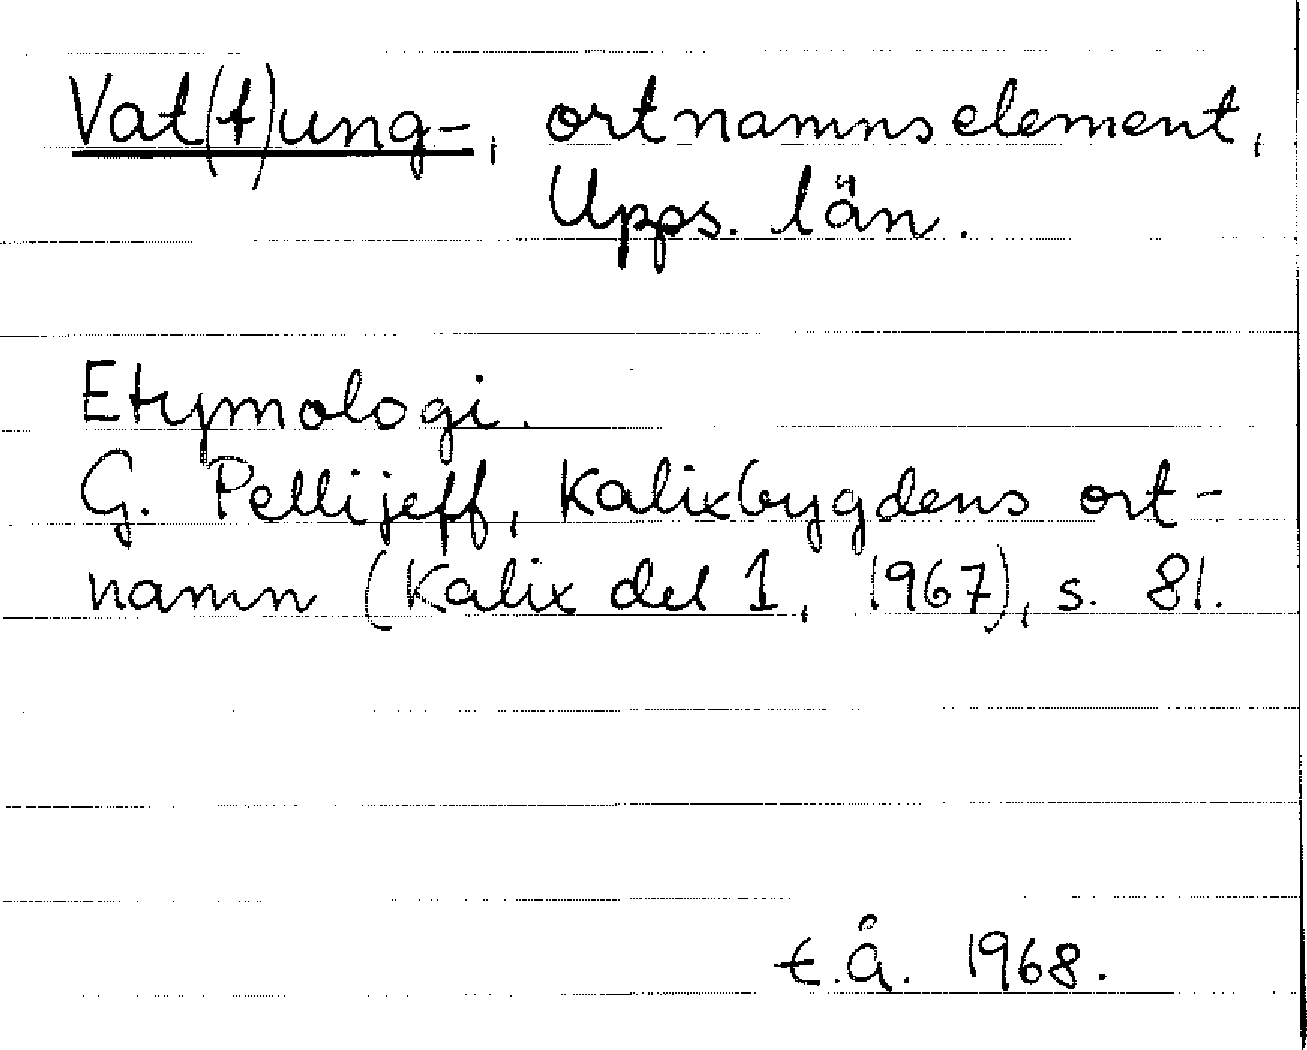 Vat(t)ung-, ortnamnselement,
Upps. län.
Etymologi.
G. Pellijeff, Kalixbygdens ort-
namn (Kalix del 1, 1967), s. 81.
t.Å. 1968.